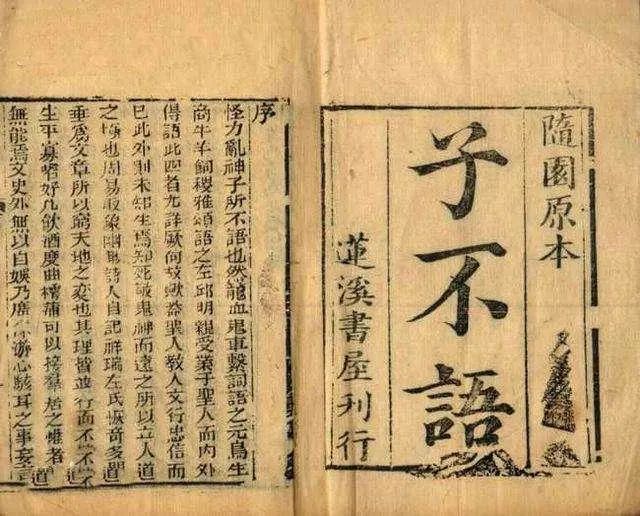 隨園原本
子不語
蓮溪書屋刊行
序
怪力亂神子所不語也然龍血鬼車繫詞語之元鳥生
商牛羊飼稷雅頌語之左邱明親受業于聖人而內外
傳語此四者尤詳厥何故歟蓋聖人教人文行忠信而
已此外則未知生焉知死敬鬼神而遠之所以立人道
之極也周易取象幽渺詩人自記祥瑞左氏恢奇多聞
垂爲文章所以窮天地之變也其理皆並行而不
生平寡嗜好凡飲酒度曲樗蒲可以接羣居之懽者
無能焉文史外無以自娛乃廣采游心駭耳之事妄言